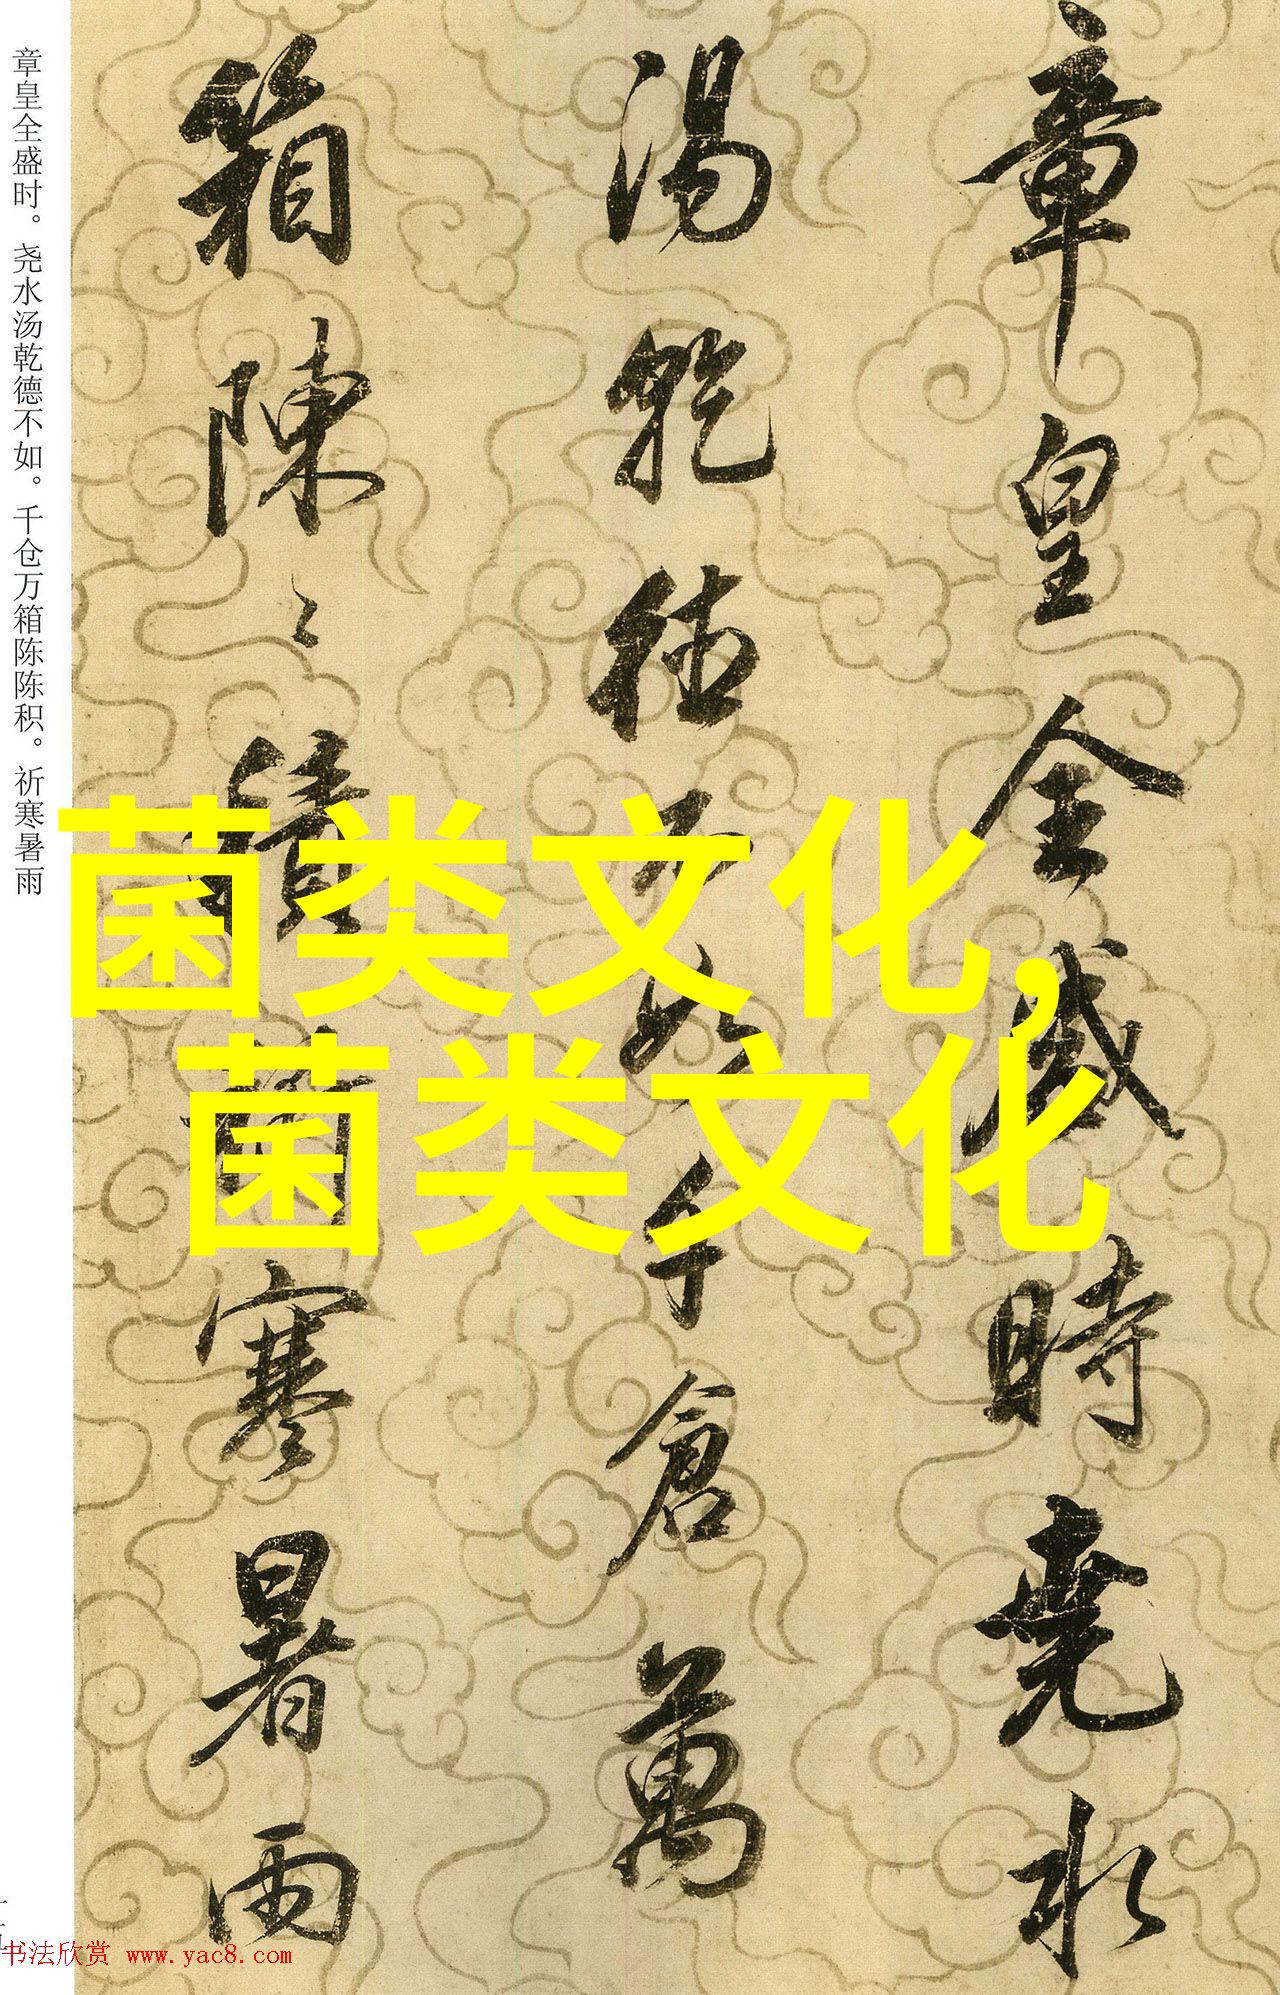 章皇全盛時堯水
湯乾德不如千倉萬
箱陳〻積祈寒暑雨
章皇全盛时。尧水汤乾德不如。千仓万箱陈陈积。祈寒暑雨
菌类文化,
菌类文化
书法欣赏 www.yac8.com